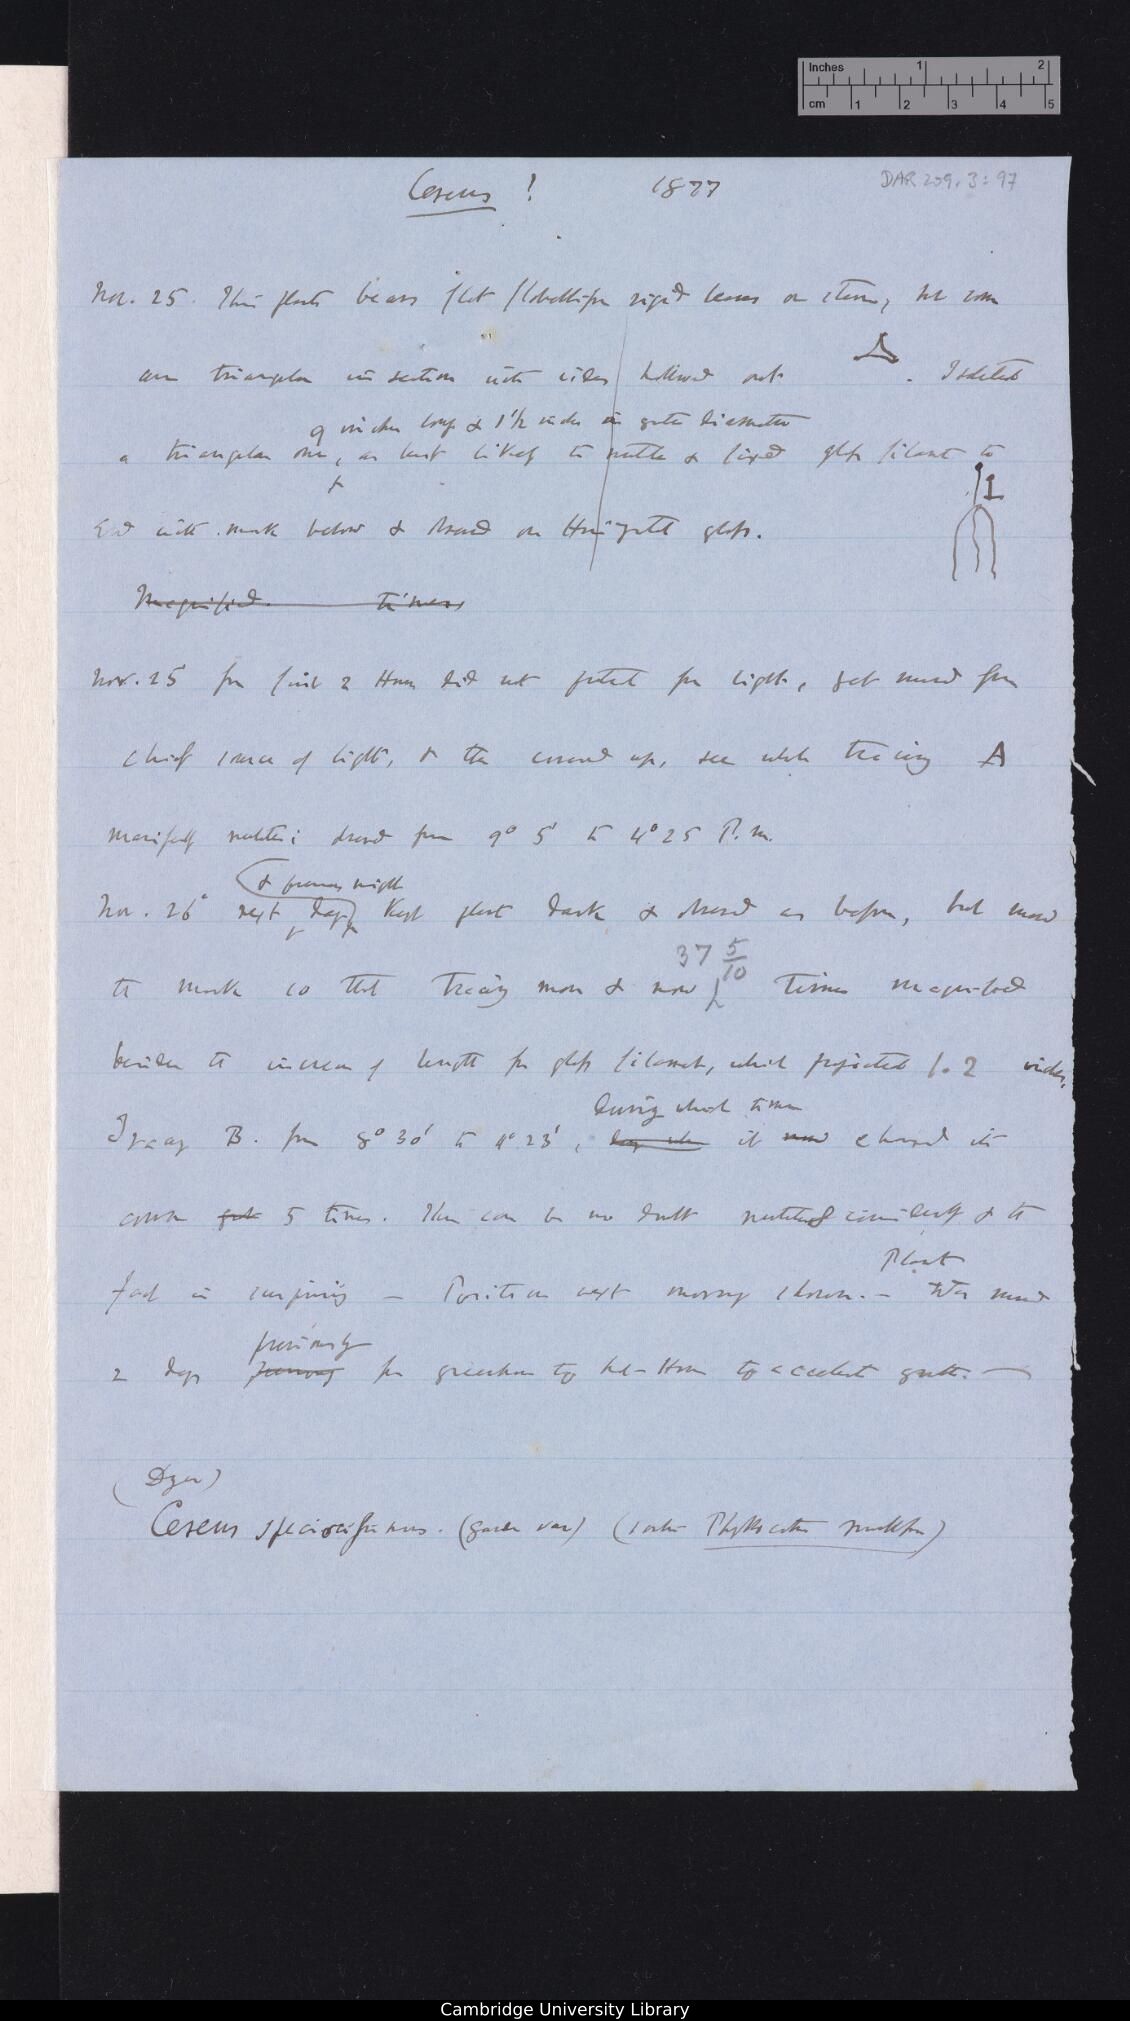 Inches 1 2
cm 1 2 3 4 5
Cereus ? 1877 DAR 209.3: 97
Nov. 25. This plant bears flat flabelliform rigid leaves or stems, but some
are triangular in section with sides hollowed out . I selected
9 inches long & 1 1/2 inches in greatest diameter
a triangular one, as least likely to nutate & fixed glass filament to
End with mark below & observed on Horizontal glass.
Magnified times
Nov. 25 for first 2 Hours did not protect from light, yet moved from
chief source of light, & then crossed up, see whole tracing A
manifestly nutates; observed from 9° 5' to 4° 25 P.m.
& previous night
Nov. 26° next day Kept plant dark & observed as before, but moved
37 5/10
the mark so that tracing more & now times magnified
besides the increase of length from glass filament, which projected 1.2 inches,
Tracing B. from 8° 30' to 4° 23', it moved changed its
during which time
course 5 times. There can be no doubt nutates & the
Plant
fact is surprising — Position next morning shown. — was moved
previously
2 days from greenhouse to hot-House to accelerate growth. —
(Dyer)
Cereus speciosissimus. (garden var) (Phyllocactus multiflorus)
Cambridge University Library